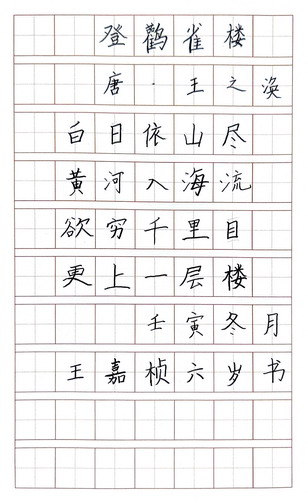 登鹳雀楼
唐·王之涣
白日依山尽
黄河入海流
欲穷千里目
更上一层楼
壬寅冬月
王嘉桢六岁书